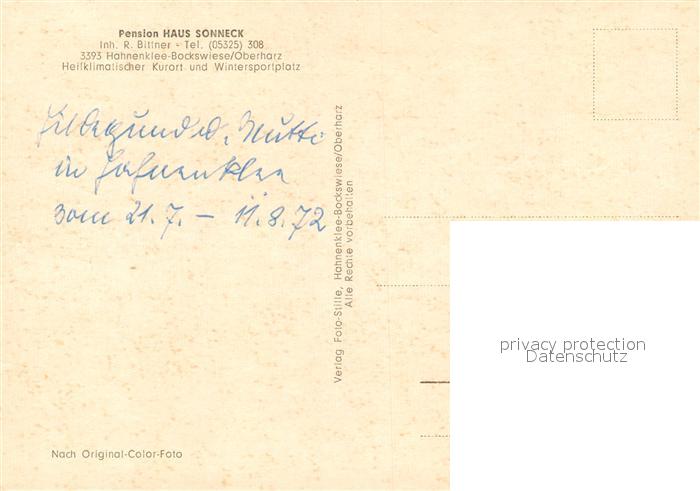 Pension HAUS SONNECK
Inh. R. Bittner - Tel. (05325) 308
3393 Hahnenklee-Bockswiese/Oberharz
Heilklimatischer Kurort und Wintersportplatz
Hildegund u. Mutti
in Hahnenklee
vom 21.7. – 11.8.72
Verlag Foto-Stille, Hahnenklee-Bockswiese/Oberharz
Alle Rechte vorbehalten
privacy protection
Datenschutz
Nach Original-Color-Foto